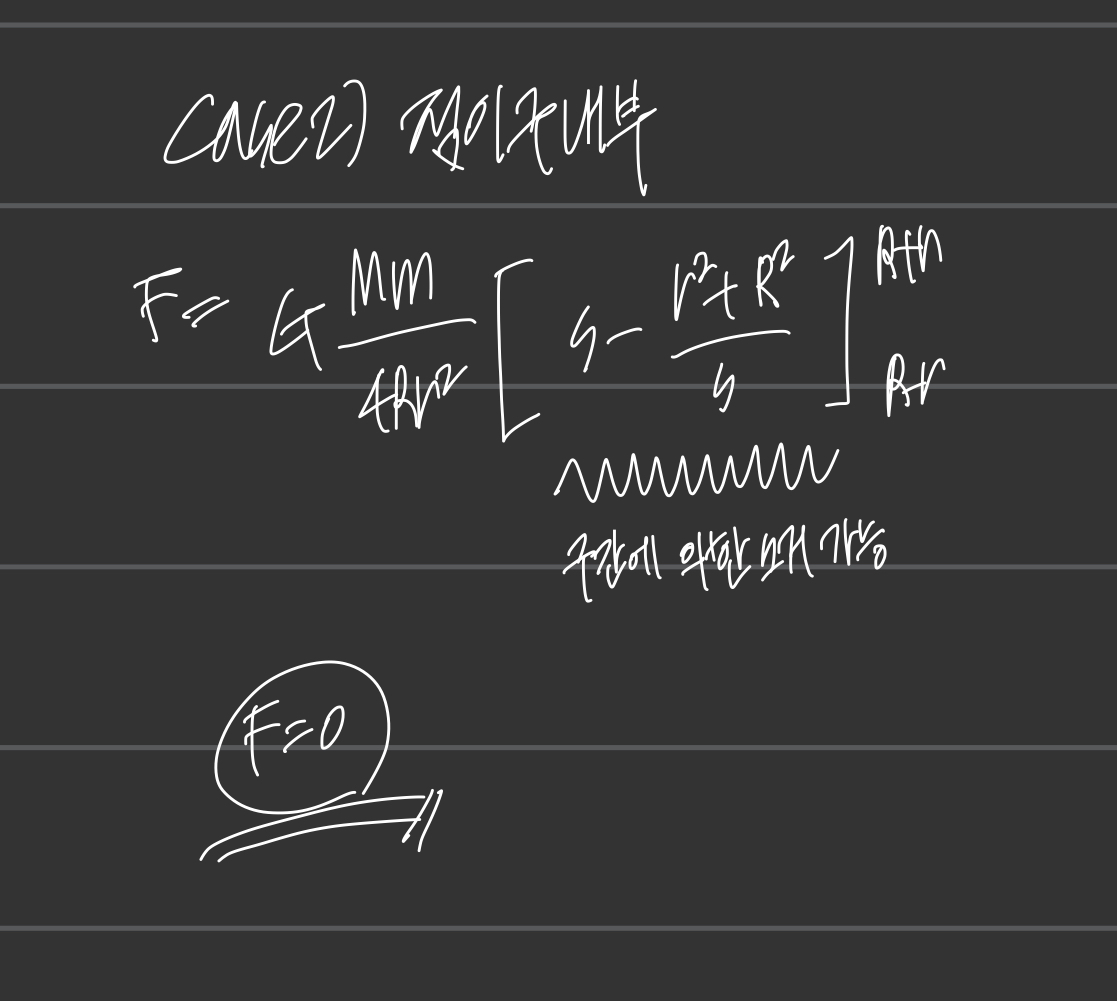 Case2) 점이 구 내부
F = G \frac{Mm}{4Rr^2} [ s - \frac{r^2 + R^2}{s} ]_{R-r}^{R+r}
구간에 의한 소거 가능
F=0